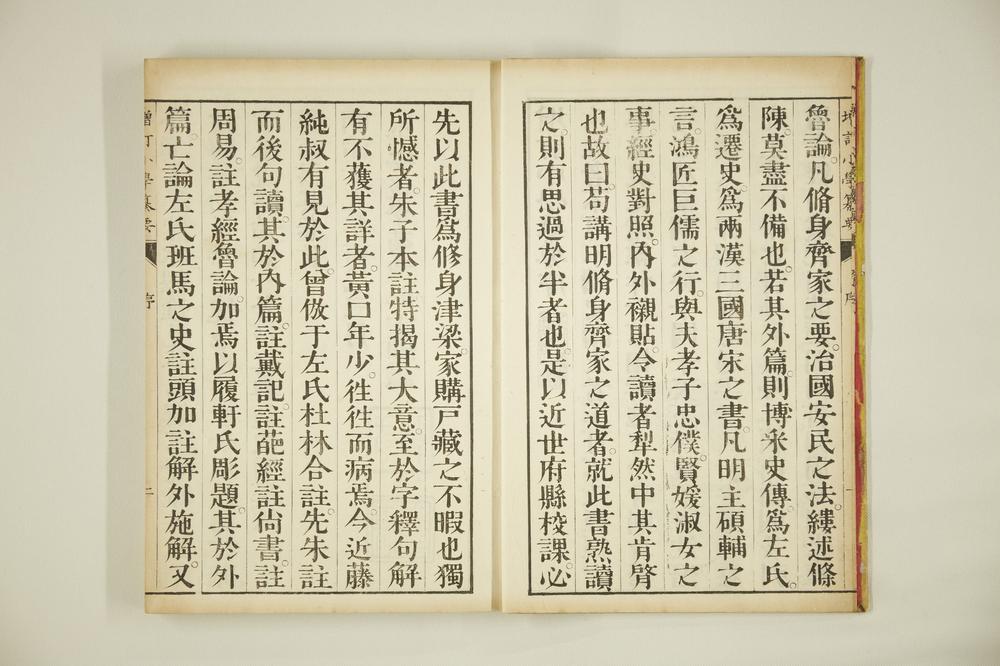 魯論。凡脩身齊家之要。治國安民之法。縷述條
陳。莫盡不備也。若其外篇。則博釆史傳。爲左氏。
爲遷史。爲兩漢三國唐宋之書。凡明主碩輔之
言。鴻匠巨儒之行。與夫孝子忠僕。賢媛淑女之
事。經史對照。内外襯貼。令讀者犁然中其肯膂
也。故曰。苟講明脩身齊家之道者。就此書熟讀
之。則有思過於半者也。是以近世府縣校課。必
先以此書爲修身津梁。家購戸藏之不暇也。獨
所憾者。朱子本註特揭其大意。至於字釋句解
有不獲其詳者。黄口年少。徃徃而病焉。今近藤
純叔有見於此。曾倣于左氏杜林合註。先朱註
而後句讀。其於内篇。註戴記。註葩經。註尙書。註
周易。註孝經魯論。加焉以履軒氏彫題。其於外
篇。亡論左氏班馬之史。註頭加註解外施解。又
增訂小學纂要
序
二